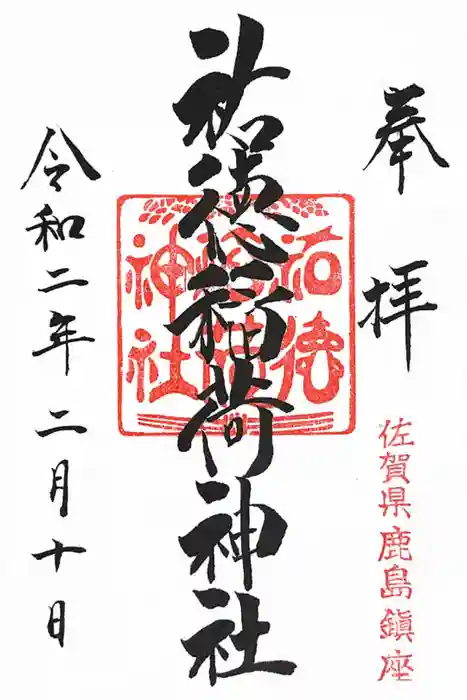 奉拝
佐賀県鹿島鎮座
祐徳稲荷神社
祐徳
稲荷
神社
令和二年二月十日